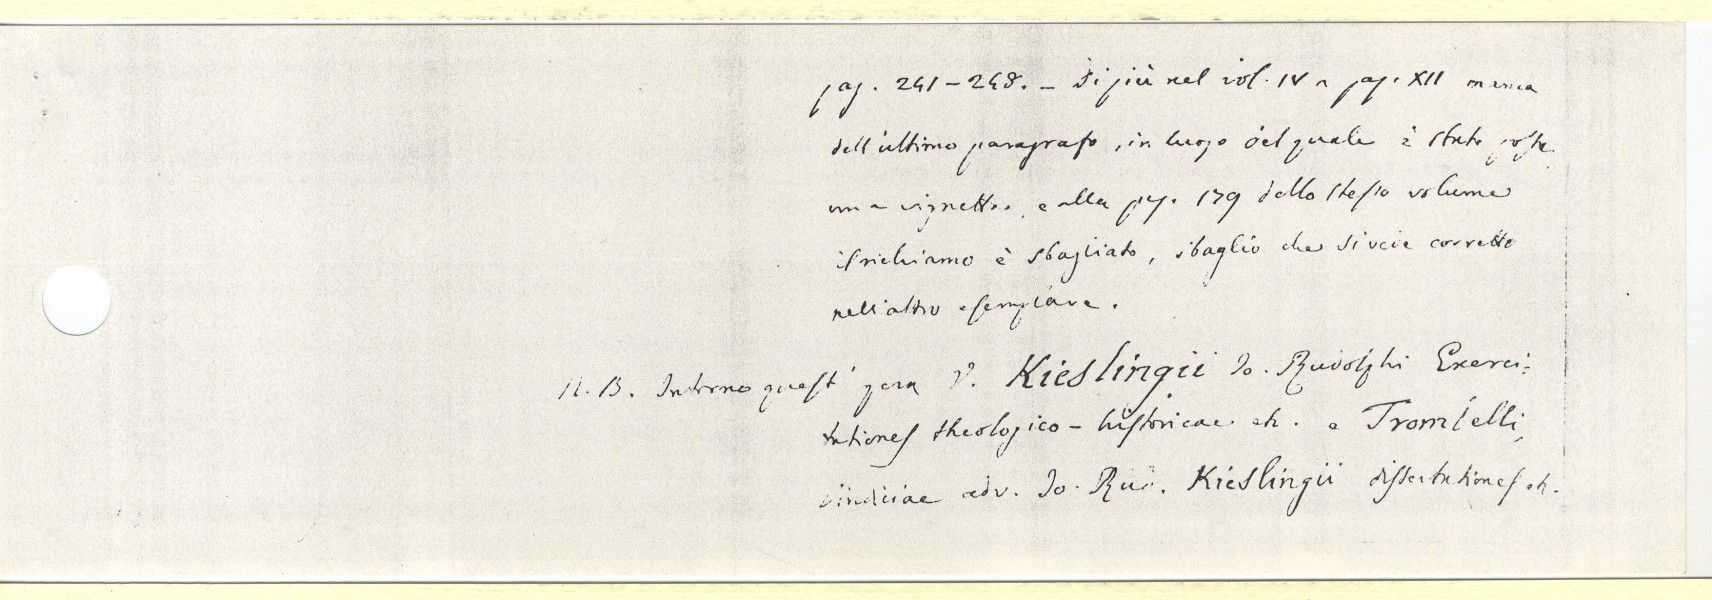 pag. 241-248. - Di più nel vol. IV a pag. XII manca
dell'ultimo paragrafo, in luogo del quale è stata posta
una vignetta, e alla pag. 179 dello stesso volume
il richiamo è sbagliato, sbaglio che si vede corretto
nell'altro esemplare.
N.B. Intorno quest' opera V. Kieslingii Jo. Rudolphi Exerci-
tationes theologico-historicae etc. e Trombelli,
vindiciae adv. Jo. Rud. Kieslingii dissertationes etc.